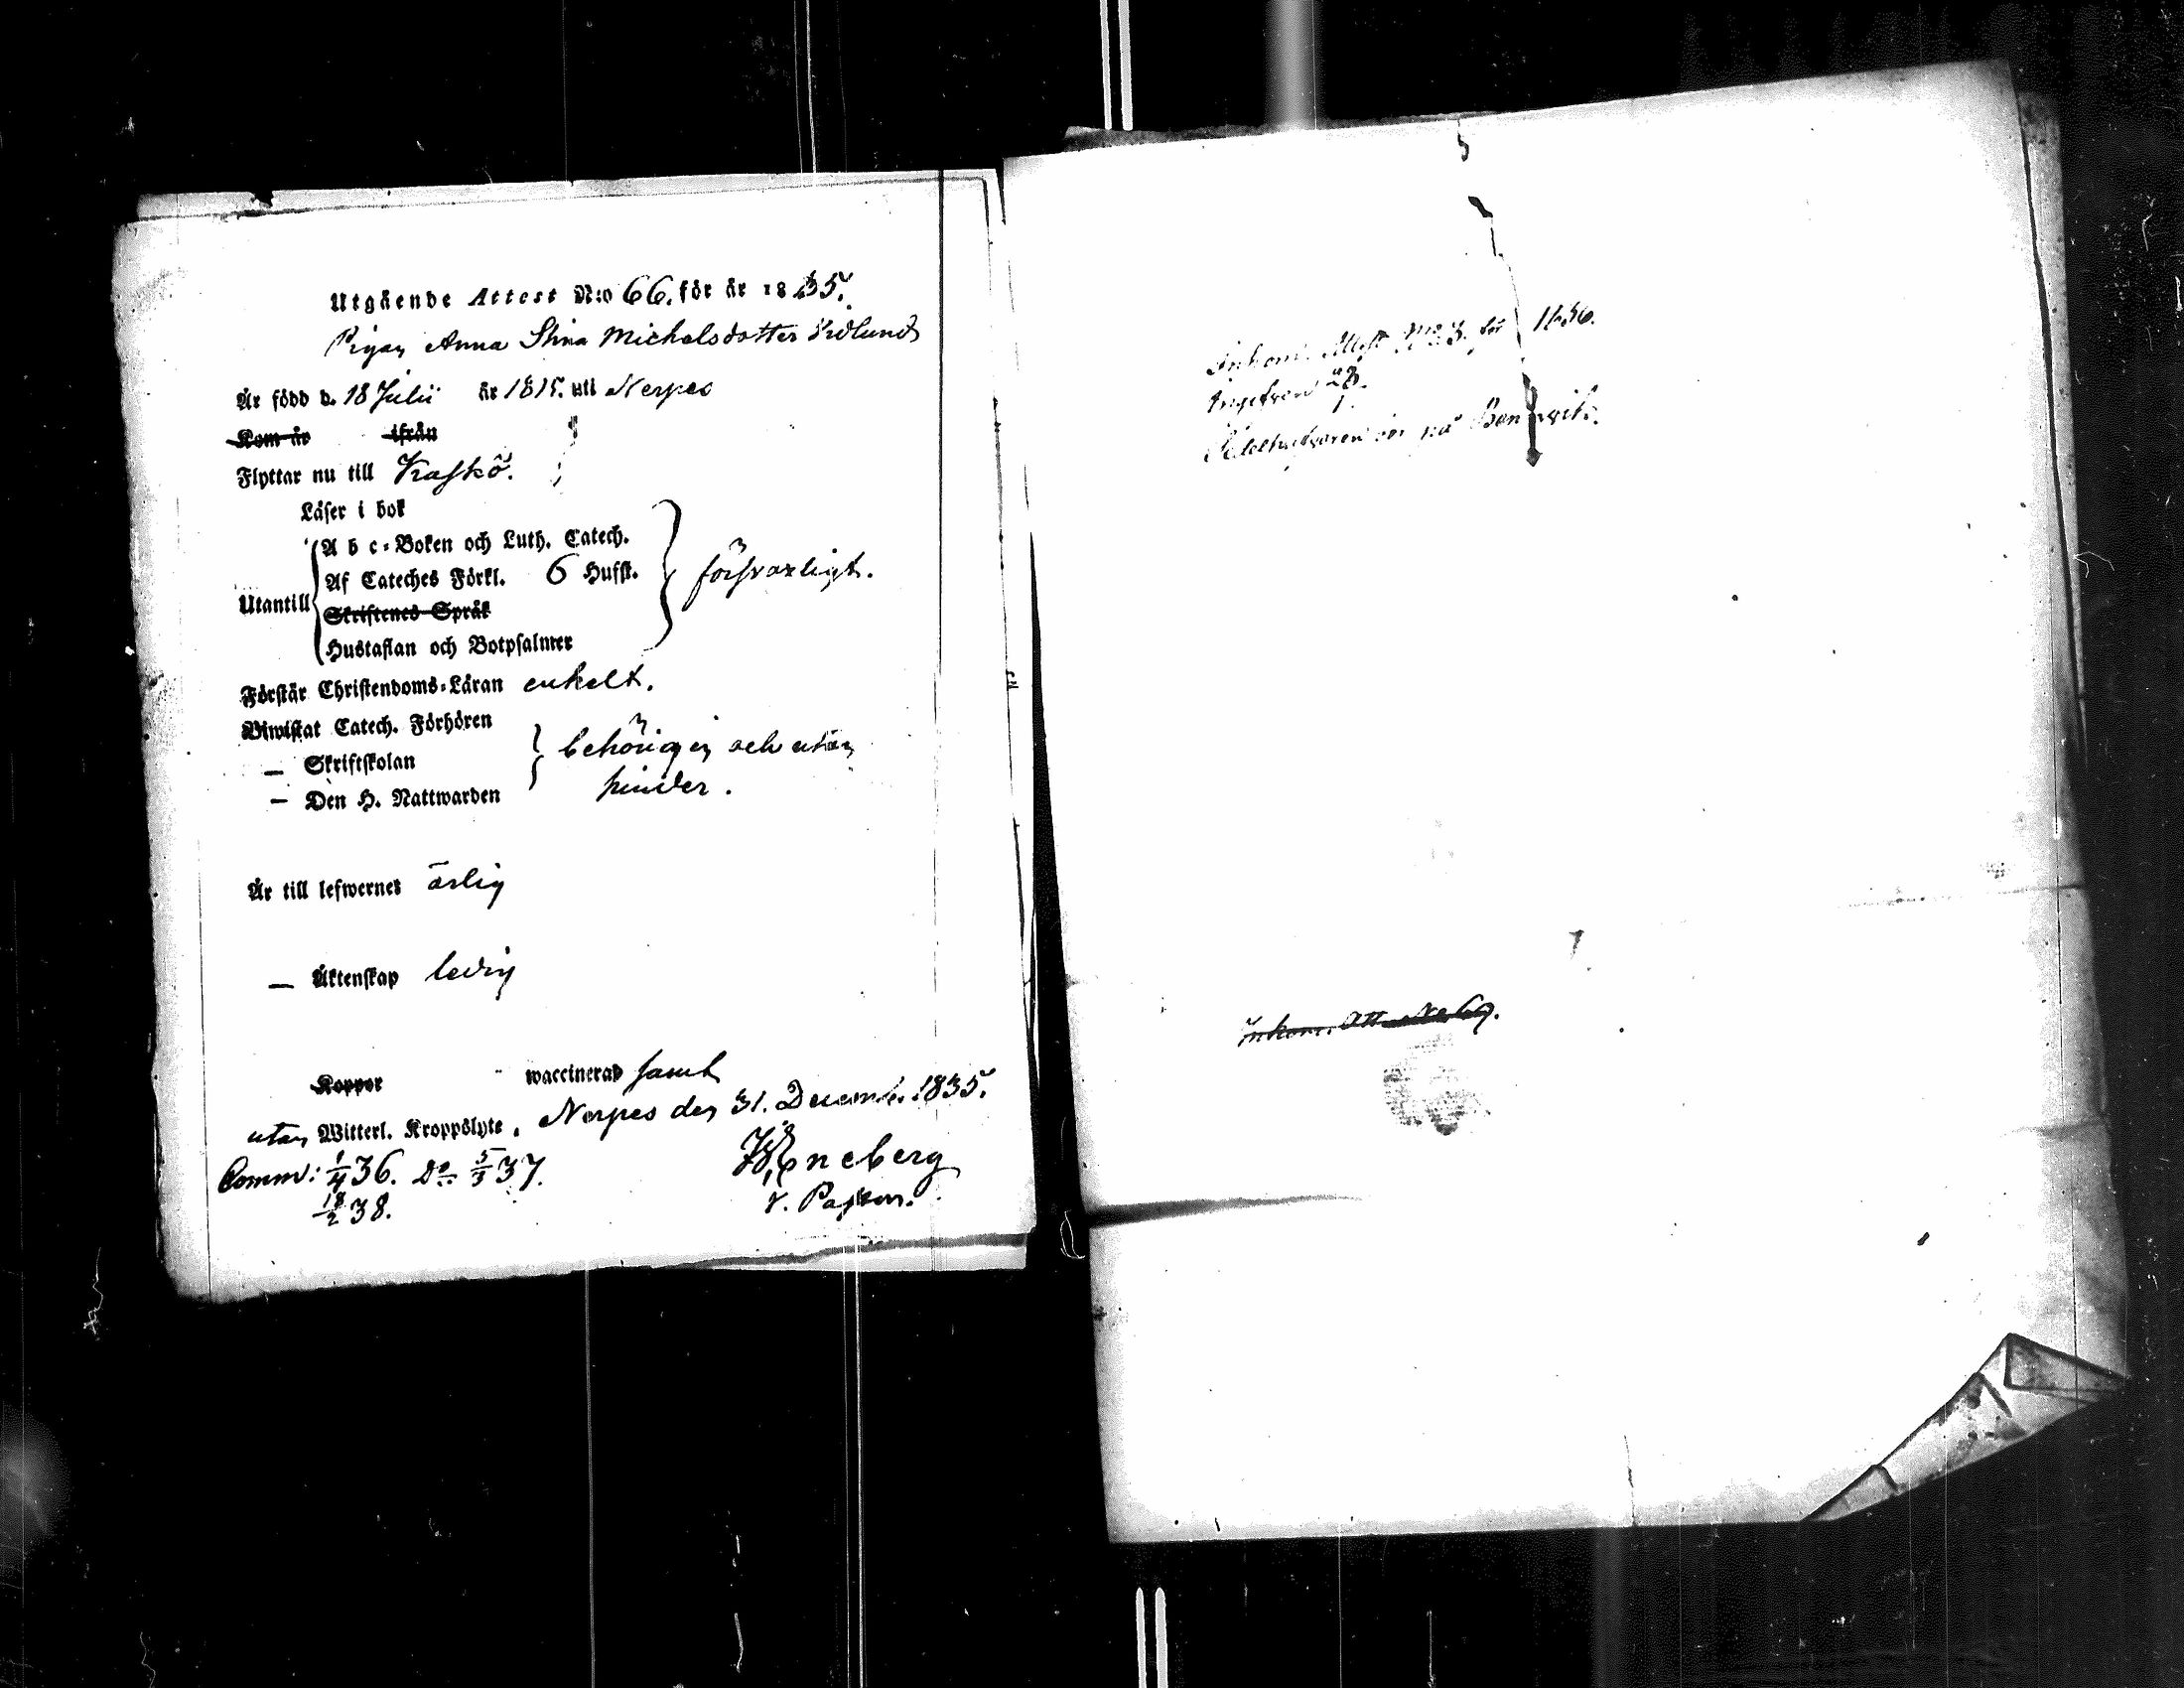 Utgående Attest N:o 66. för år 1835.
Pigan Anna Stina Michelsdotter Edlund
Är född d. 18 Julii år 1815. uti Nerpes
Kom år ifrån
Flyttar nu till Kaskö.
Läser i bok
Utantill
A b c-Boken och Luth. Catech.
Af Cateches Förkl. 6 Hufst.
Skriftenes Språk
Hustaflan och Botpsalmer
försvarligt.
Förstår Christendoms-Läran enkelt.
Biwistat Catech. Förhören
— Skriftskolan
— Den H. Nattwarden
behörigen och utan
hinder.
Är till lefwernet ärlig
— Äktenskap ledig
Koppor waccinerad samt
utan Witterl. Kroppslyte, Nerpes den 31. Decemb. 1835.
Comm: 1/4 36. do 5/3 37.
18/2 38.
Eneberg
v. Pastor.
Inkom. Attest No 3. för 1836.
Inkom. Att. No 69.